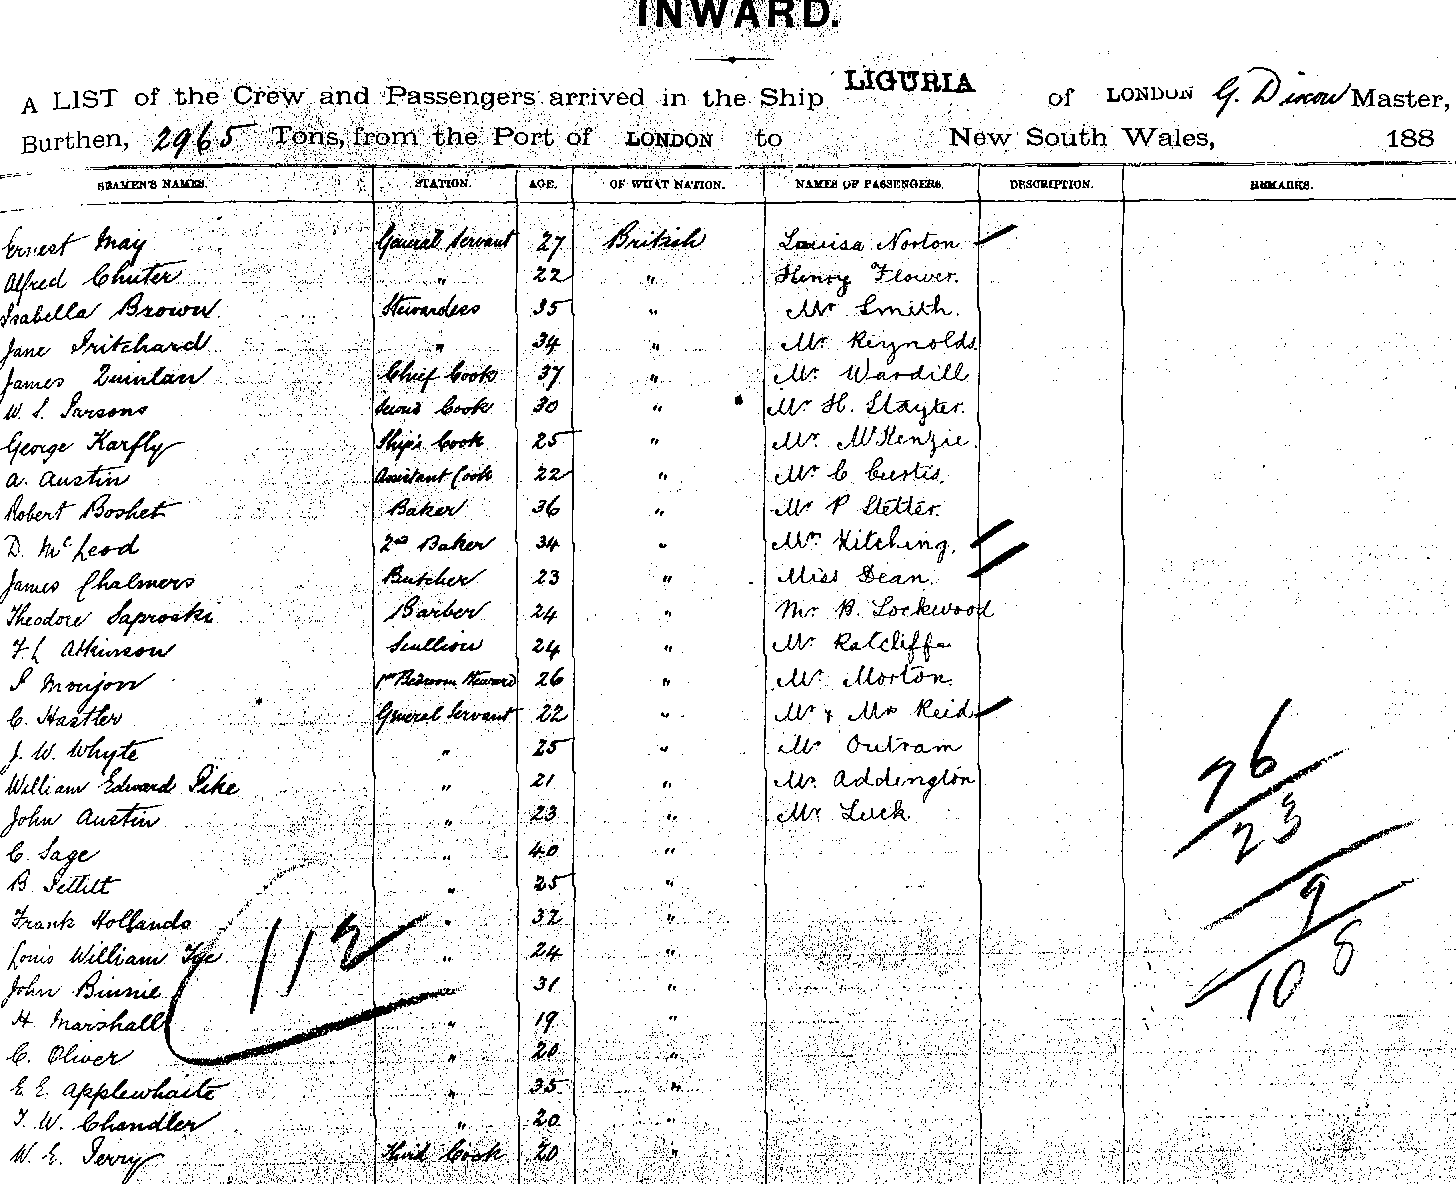 INWARD.
A LIST of the Crew and Passengers arrived in the Ship LIGURIA of LONDON G. Dixon Master,
Burthen, 2965 Tons, from the Port of LONDON to New South Wales, 188
SEAMEN'S NAMES. STATION. AGE. OF WHAT NATION. NAMES OF PASSENGERS. DESCRIPTION. REMARKS.
Ernest May General Servant 27 British Louisa Norton
Alfred Chuter " 22 " Henry Flower.
Isabella Brown Stewardess 35 " Mr Smith.
Jane Pritchard " 34 " Mr Reynolds
James Quinlan Chief Cook 37 " Mr Wardill
W. S. Parsons Second Cook 30 " Mr H. Slayter.
George Karfly Ship's Cook 25 " Mr McKenzie.
A. Austin Assistant Cook 22 " Mr C Curtis.
Robert Boshet Baker 36 " Mr P Stetter.
D. McLeod 2nd Baker 34 " Mr Kitching.
James Chalmers Butcher 23 " Miss Dean.
Theodore Saproski Barber 24 " Mr B. Lockwood
F. L Atkinson Scullion 24 " Mr Ratcliffe
Moujon 1st Bedroom Steward 26 " Mr Morton.
C. Hastler General Servant 22 " Mr & Mrs Reid
J. W. Whyte " 25 " Mr Outram
William Edward Pike " 21 " Mr Addington
John Austin " 23 " Mr Luck.
C. Sage " 40 "
B. Pettitt " 25 "
Frank Hollands " 32 "
Louis William Tye " 24 "
John Binnie " 31 "
H Marshall " 19 "
C. Oliver " 20 "
E. E. Applewhaite " 35 "
T. W. Chandler " 20 "
W. E. Perry Third Cook 20 "
112
76
23
9
108